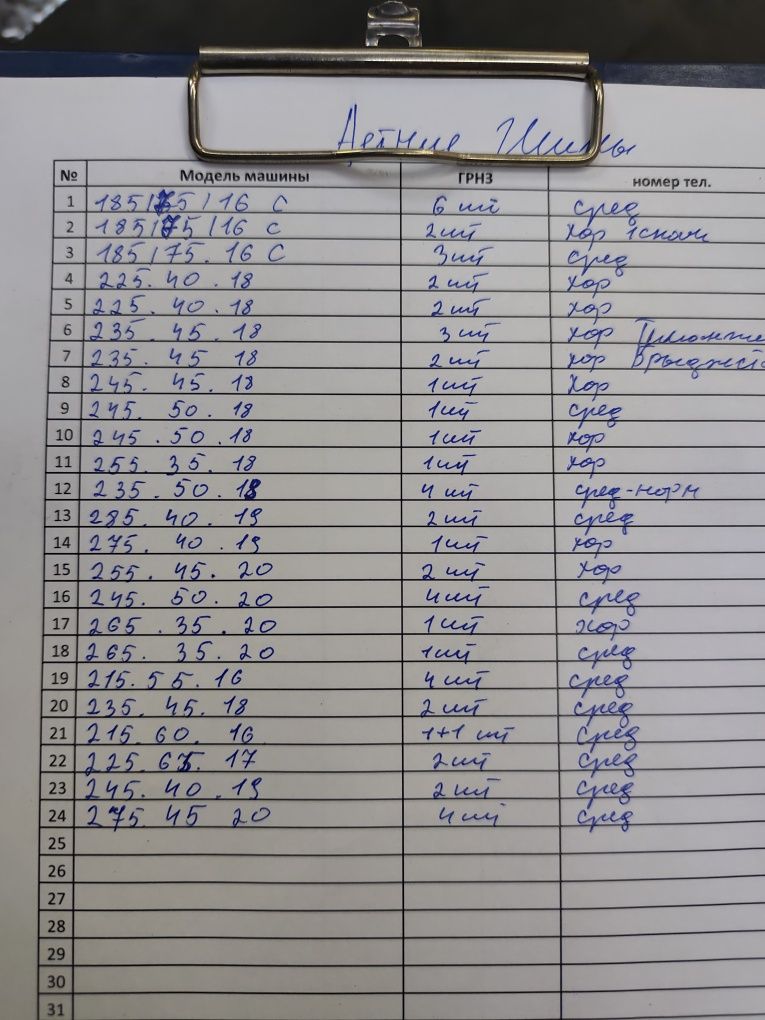 Летние Шины
№ Модель машины ГРНЗ номер тел.
1 185/75/16 С 6 шт сред
2 185/75/16 с 2шт хор
3 185/75.16 С 3шт сред
4 225.40.18 2шт хор
5 225.40.18 2шт хор
6 235.45.18 3шт хор
7 235.45 18 2шт хор
8 245.45.18 1шт хор
9 245.50.18 1шт сред
10 245.50.18 1шт хор
11 255.35.18 1шт хор
12 235.50.18 4шт сред-норм
13 285.40.19 2шт сред
14 275.40.19 1шт хор
15 255.45.20 2шт хор
16 245.50.20 4шт сред
17 265.35.20 1шт хор
18 265.35.20 1шт сред
19 215.55.16 4шт сред
20 235.45.18 2шт сред
21 215.60.16 1+1 шт сред
22 225.65.17 2шт сред
23 245.40.19 2шт сред
24 275.45 20 4шт сред
25
26
27
28
29
30
31